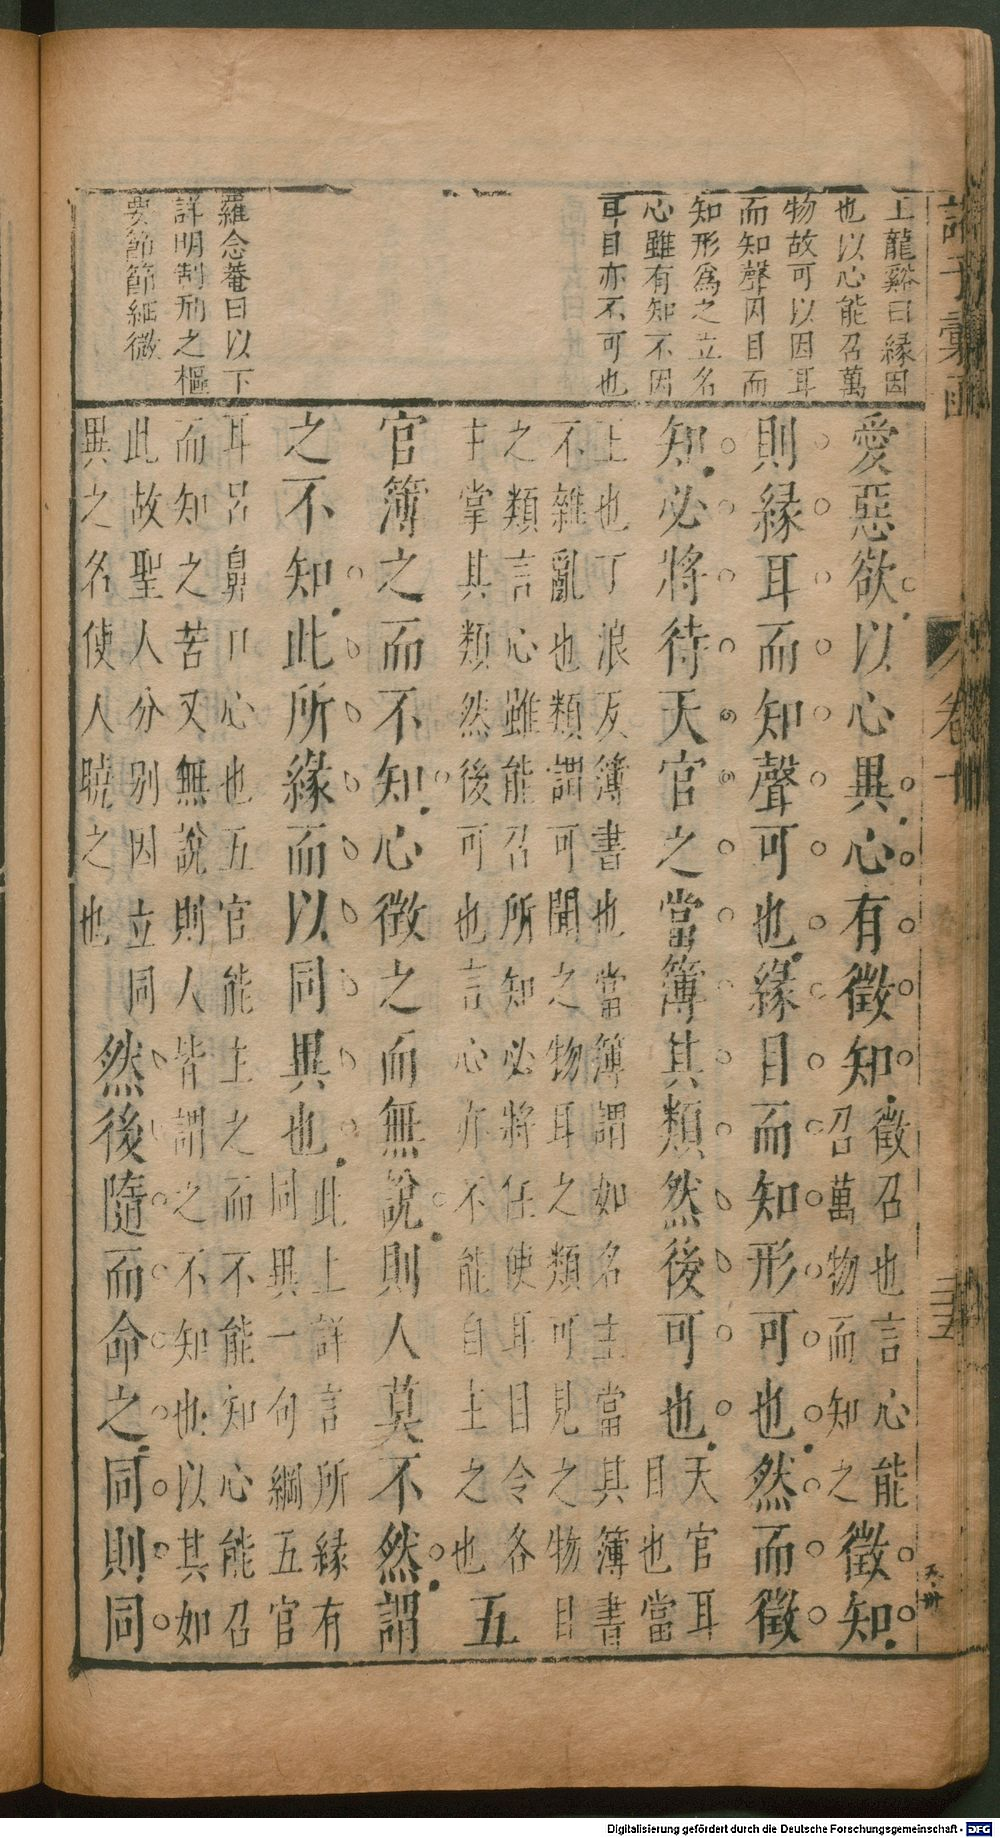 諸子彙函
卷十
三十五
王龍谿曰緣因
也以心能召萬
物故可以因耳
而知聲因目而
知形為之立名
心雖有知不因
耳目亦不可也
羅念菴曰以下
詳明制刑之樞
要節節細微
愛惡欲以心異心有徵知徵召也言心能召萬物而知之徵知
則緣耳而知聲可也緣目而知形可也然而徵
知必將待天官之當簿其類然後可也天官耳目也當
主也丁浪反簿書也當簿謂如各主當其簿書
不雜亂也類謂可聞之物耳之類可見之物目
之類言心雖能召所知必將任使耳目令各
主掌其類然後可也言心亦不能自主之也五
官簿之而不知心徵之而無說則人莫不然謂
之不知此所緣而以同異也此上詳言所緣有同異一句綱五官
耳目鼻口心也五官能主之而不能知心能召
而知之苦又無說則人皆謂之不知也以其如
此故聖人分別因立同
異之名使人曉之也然後隨而命之同則同
Digitalisierung gefördert durch die Deutsche Forschungsgemeinschaft - DFG